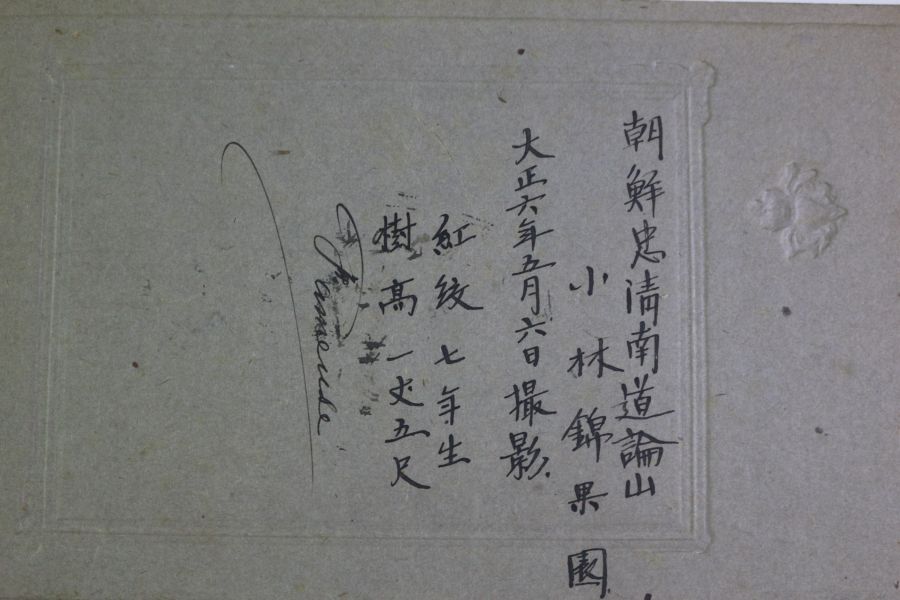 朝鮮忠清南道論山
小林錦果園
大正六年五月六日撮影.
紅絞 七年生
樹高 一丈五尺